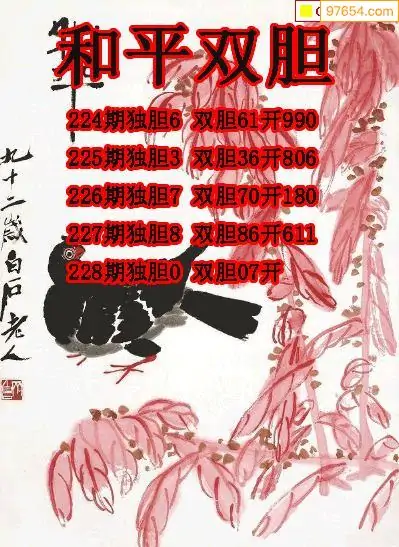 97654.com
和平双胆
224期独胆6 双胆61开990
225期独胆3 双胆36开806
226期独胆7 双胆70开180
227期独胆8 双胆86开611
228期独胆0 双胆07开
九十二岁白石老人